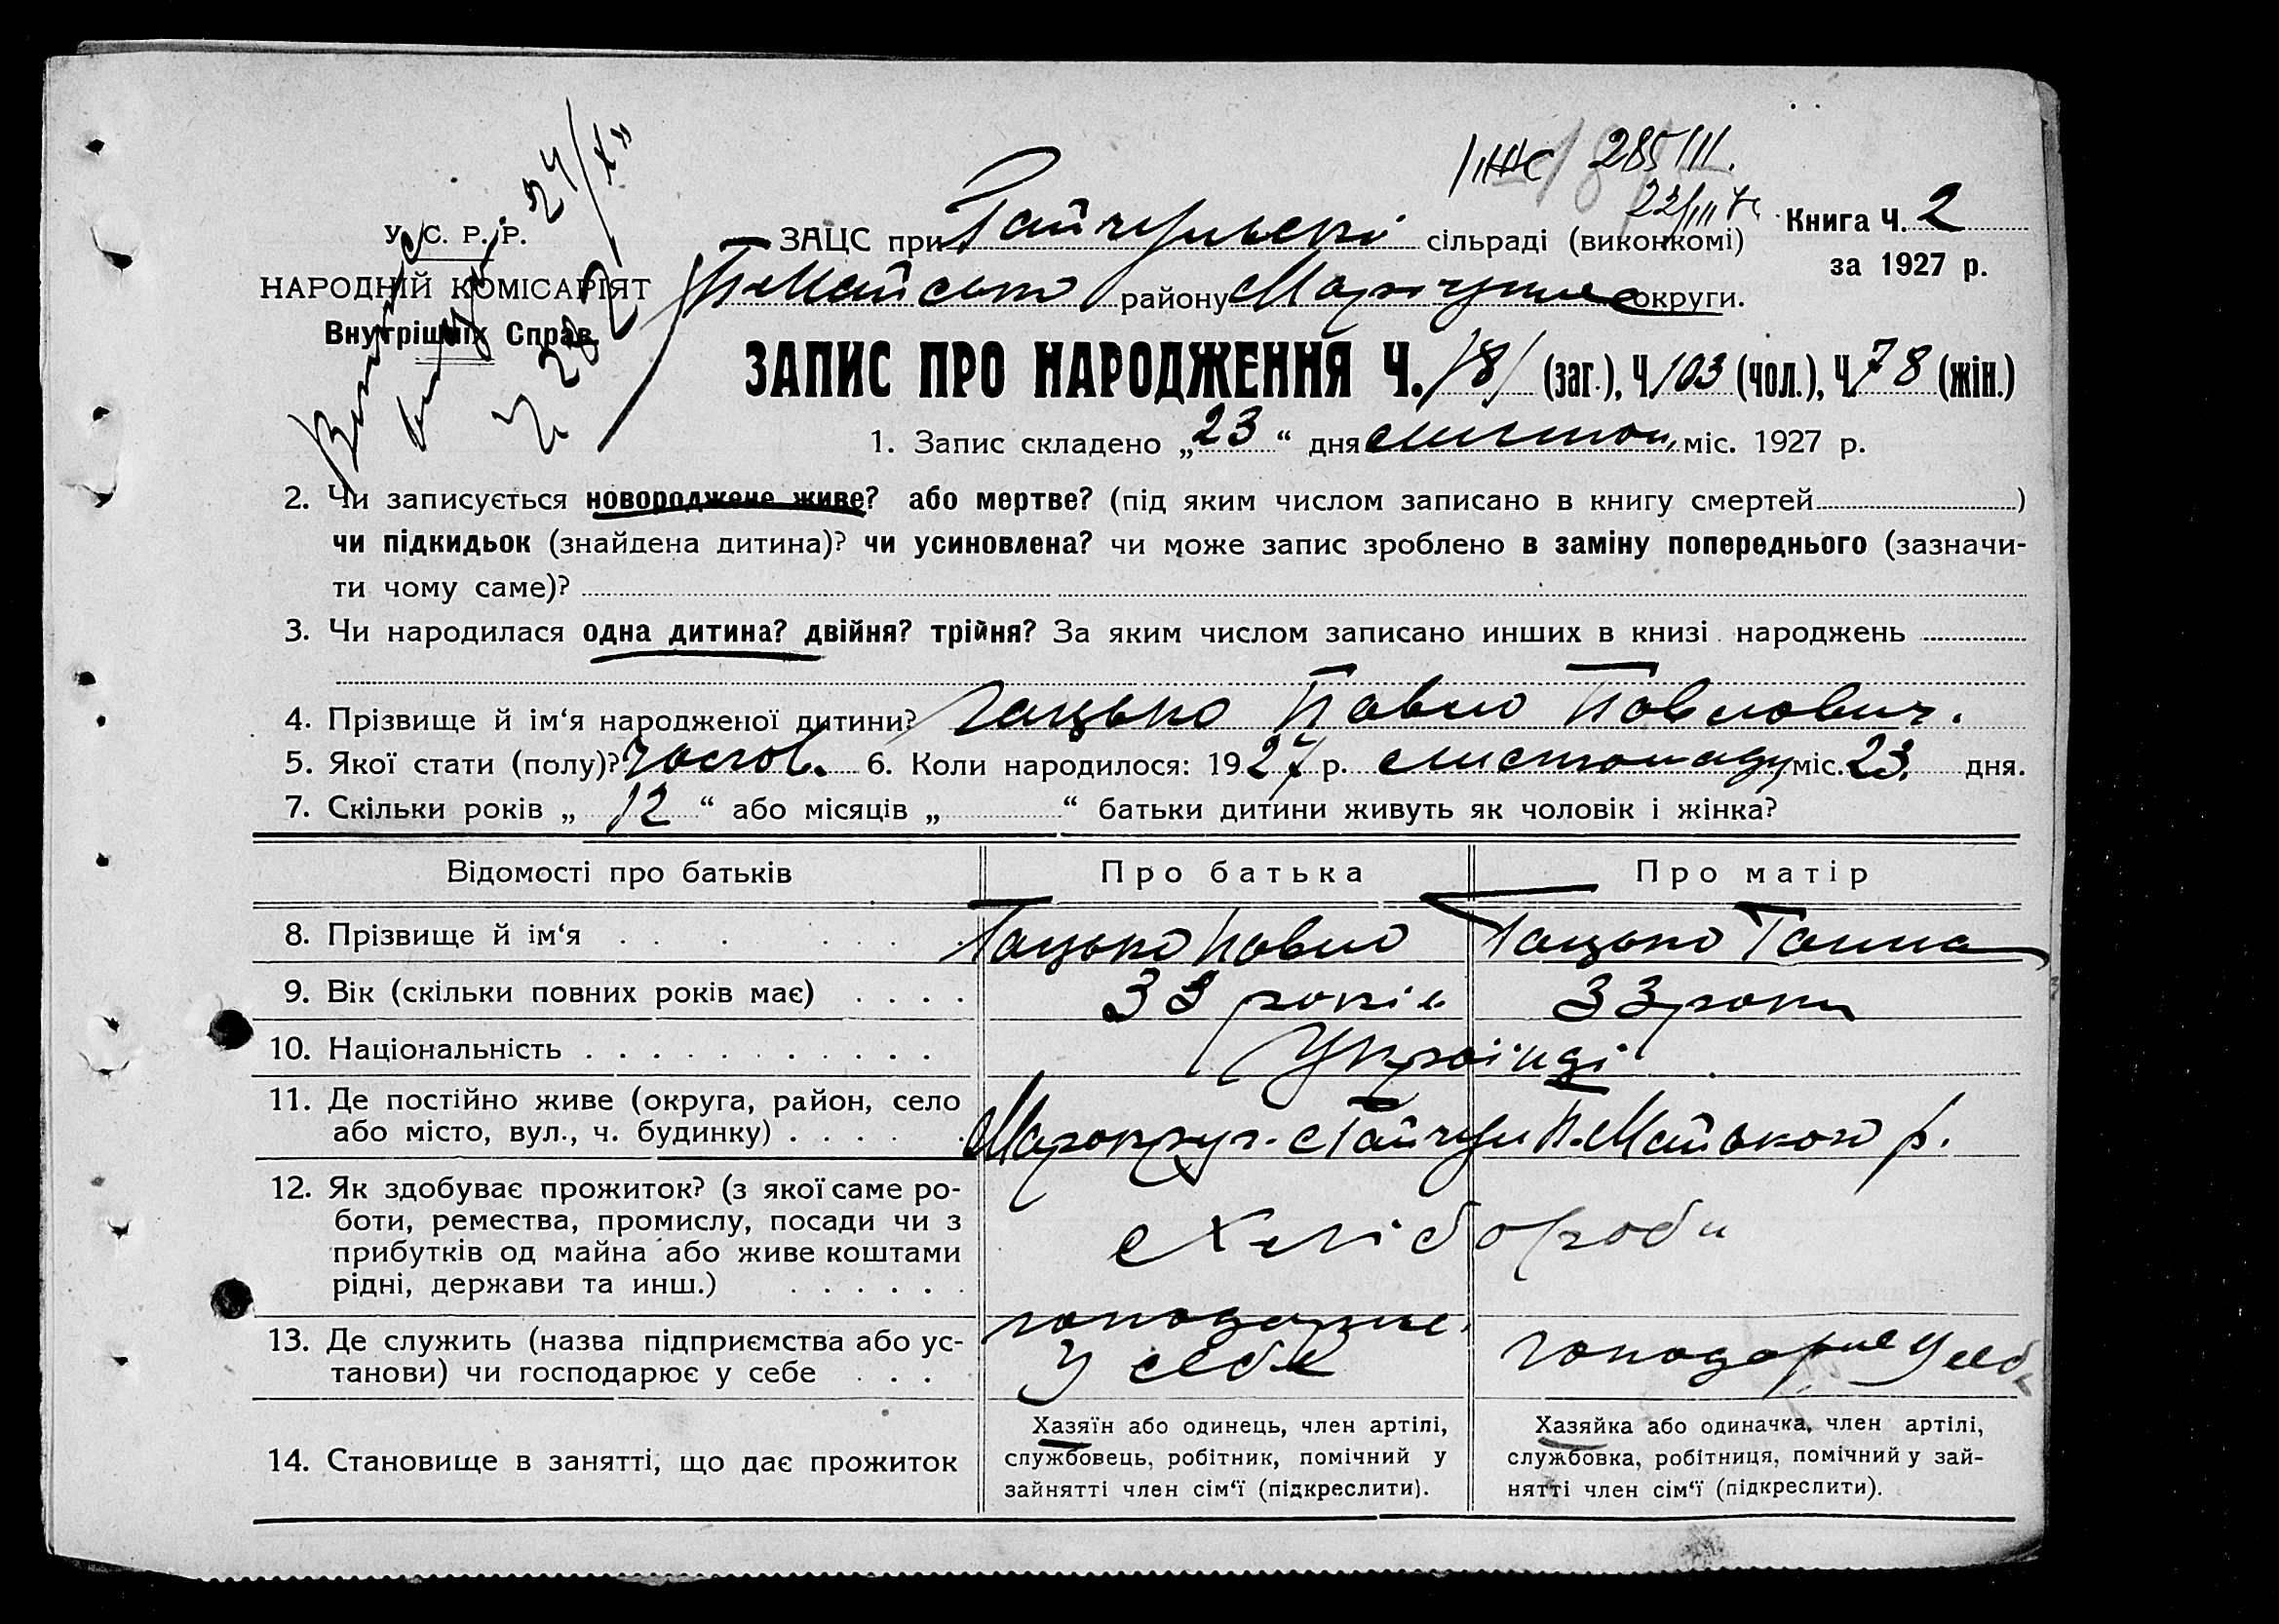 285/III.
22/III
У. С. Р. Р.
ЗАЦС при Гайчульскі сільраді (виконкомі)
Книга Ч. 2
НАРОДНІЙ КОМІСАРІЯТ
П-Майсько району округи.
за 1927 р.
Внутрішніх Справ.
ЗАПИС ПРО НАРОДЖЕННЯ Ч. 181 (заг.), Ч. 103 (чол.), Ч. 78 (жін.)
1. Запис складено „23“ дня листоп. міс. 1927 р.
2. Чи записується новороджене живе? або мертве? (під яким числом записано в книгу смертей )
чи підкидьок (знайдена дитина)? чи усиновлена? чи може запис зроблено в заміну попереднього (зазначи-
ти чому саме)?
3. Чи народилася одна дитина? двійня? трійня? За яким числом записано инших в книзі народжень
4. Прізвище й ім‘я народженої дитини? Гацько Павло Павлович.
5. Якої стати (полу)? чолов. 6. Коли народилося: 1927 р. листопаду міс. 23. дня.
7. Скільки років „12“ або місяців „ “ батьки дитини живуть як чоловік і жінка?
Відомості про батьків Про батька Про матір
8. Прізвище й ім‘я Гацько Павло Гацько Ганна
9. Вік (скільки повних років має) 33 років 33 роки
10. Національність Українці
11. Де постійно живе (округа, район, село
або місто, вул., ч. будинку) Марокруг. с Гайчул П-Майського р.
12. Як здобуває прожиток? (з якої саме ро-
боти, ремества, промислу, посади чи з
прибутків од майна або живе коштами
рідні, держави та инш.)
Хлібороби
13. Де служить (назва підприємства або ус-
танови) чи господарює у себе
у себе
у себе
14. Становище в занятті, що дає прожиток
Хазяїн або одинець, член артілі,
службовець, робітник, помічний у
зайнятті член сім‘ї (підкреслити).
Хазяйка або одиначка, член артілі,
службовка, робітниця, помічний у зай-
нятті член сім‘ї (підкреслити).